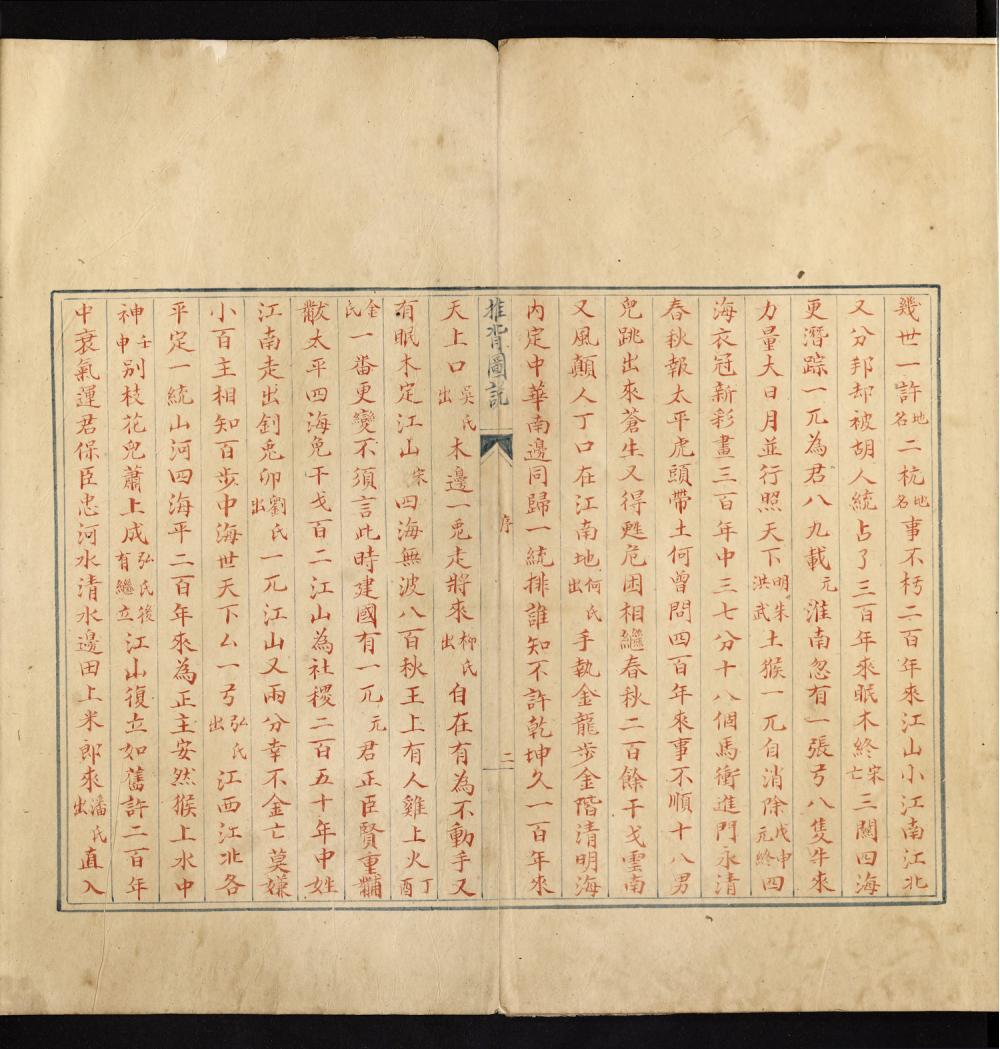 幾世一許地名二杭地名事不朽二百年來江山小江南江北
又分邦却被胡人統占了三百年來眠木終宋亡三關四海
更潛踪一兀為君八九載元淮南忽有一張弓八隻牛來
力量大日月並行照天下明朱洪武土猴一兀自消除戊申元終四
海衣冠新彩畫三百年中三七分十八個馬衝進門永清
春秋報太平虎頭帶土何曾問四百年來事不順十八男
兒跳出來蒼生又得甦危困相繼春秋二百餘干戈雲南
又風顛人丁口在江南地何氏出手執金龍步金階清明海
內定中華南邊同歸一統排誰知不許乾坤久一百年來
推背圖說
序
二
天上口吳氏出木邊一兎走將來柳氏出自在有為不動手又
有眠木定江山宋四海無波八百秋王上有人雞上火丁酉
金氏一番更變不須言此時建國有一兀元君正臣賢重黼
黻太平四海免干戈百二江山為社稷二百五十年中姓
江南走出釗兎卯劉氏出一兀江山又兩分幸不金亡莫嫌
小百主相知百步中海世天下厶一弓弘氏出江西江北各
平定一統山河四海平二百年來為正主安然猴上水中
神壬申別枝花兒蕭上成弘氏後有繼立江山復立如舊許二百年
中衰氣運君保臣忠河水清水邊田上米郎來潘氏出直入